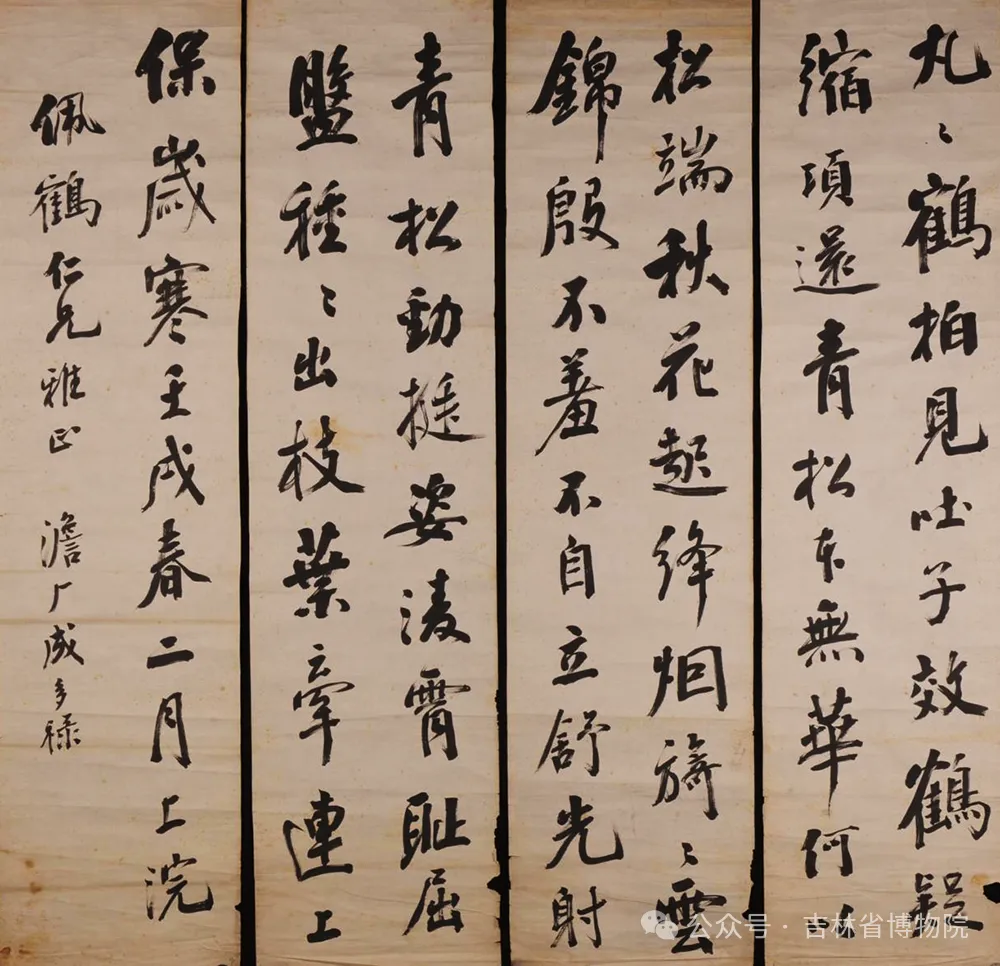 丸〻鶴柏見吐子效鶴疑
縮項還青松本無華何
松端秋花絳烟旖〻雲
錦殷不羞不自立舒光射
青松勁挺姿淩霄耻屈
盤種〻出枝葉牽連上
保歲寒壬戌春二月上浣
佩鶴仁兄雅正 澹厂成多祿
公众号·吉林省博物院